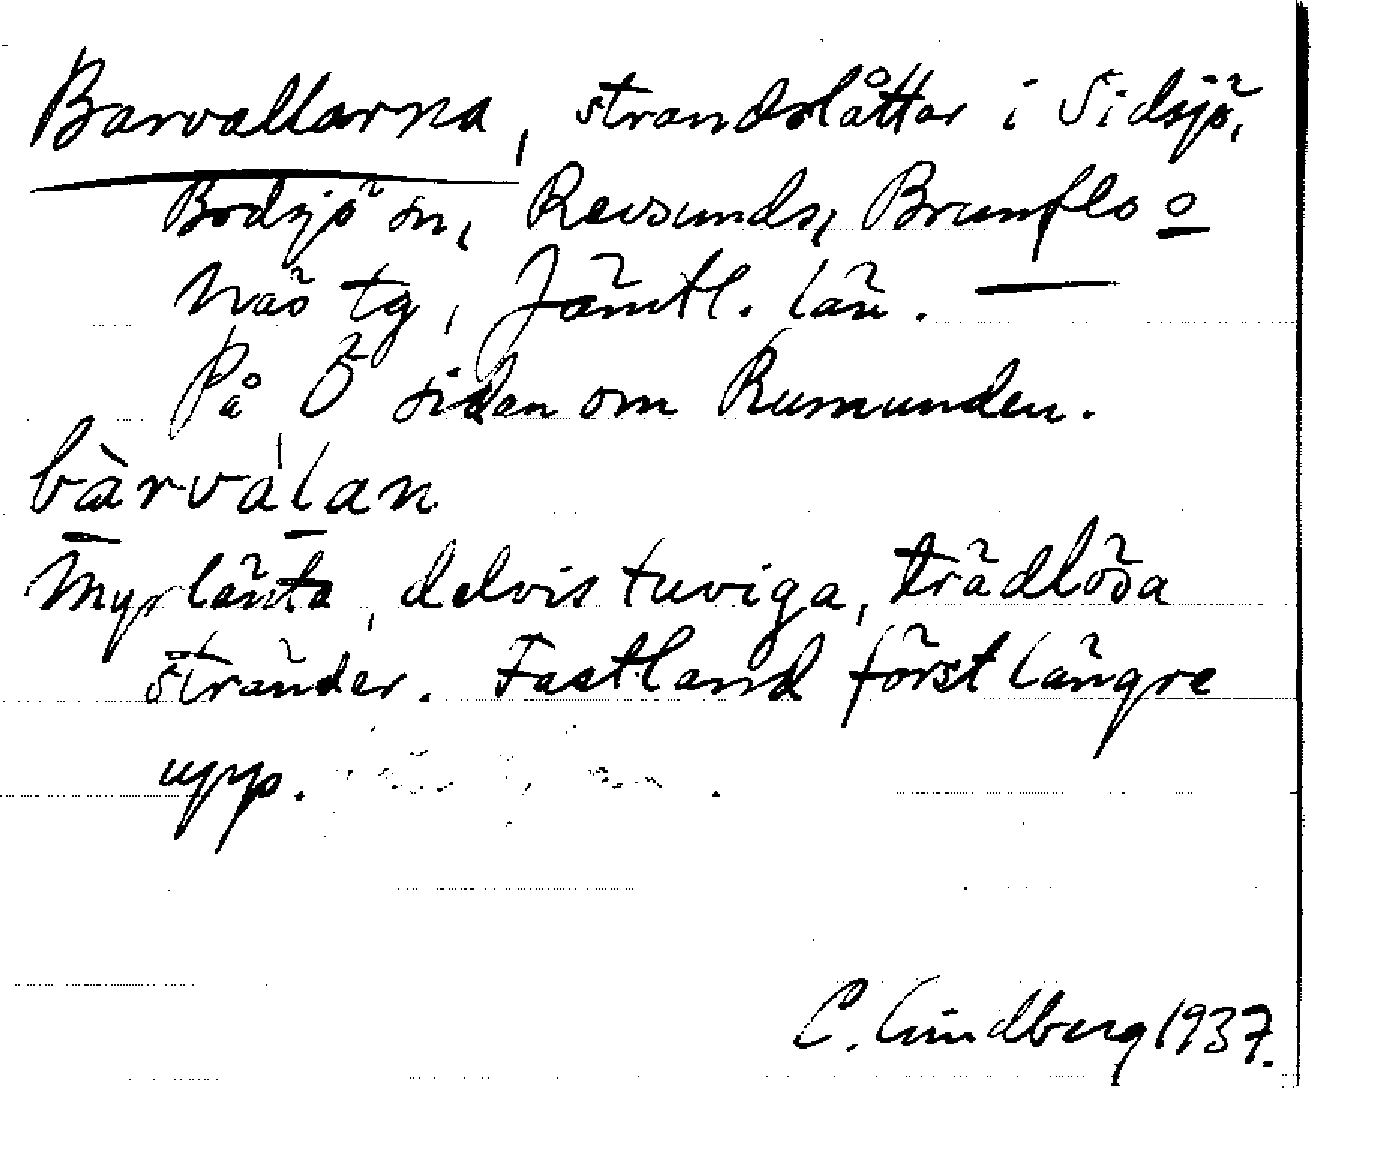 Barvallarna, strandslåtter i Sidsjö,
Bodsjö sn, Revsunds, Brunflo o
Näs tg, Jämtl. län.
På Ö sidan om Rumunden.
bàrválan
Myrlänta, delvis tuviga, trädlösa
stränder. Fastland först längre
upp.
C. Lindberg 1937.